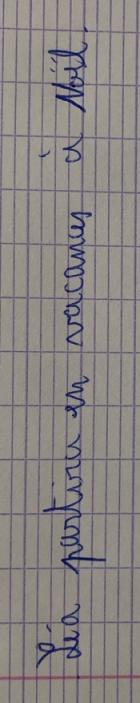 Léa partira en vacances à Noël.